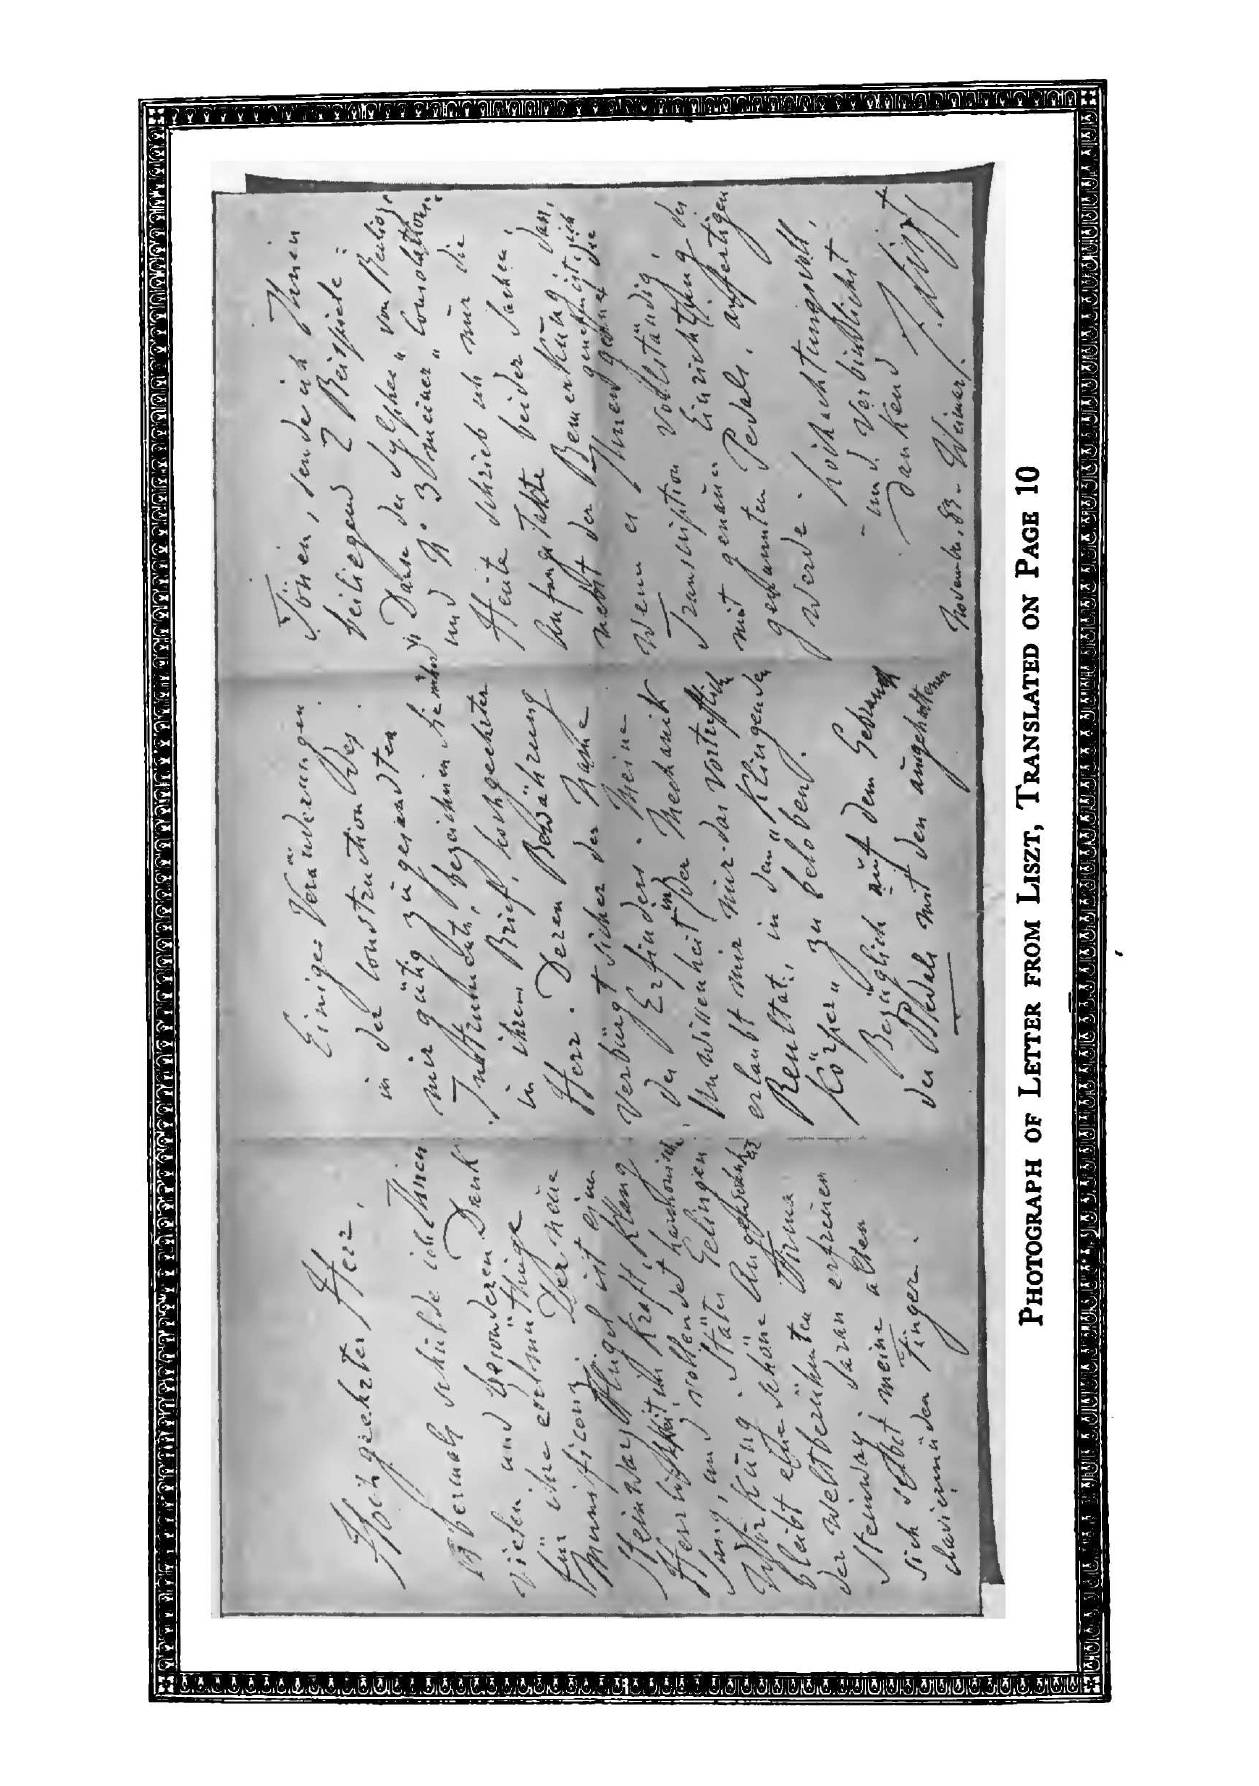 Hochgeehrter Herr,
Abermals schulde ich Ihnen
vielen und besonderen Dank
für ihre edelmüthige
Munificenz. Der neue
Steinway Flügel ist ein
Herrlichkeit in Kraft, Klang
Sang, und vollendet harmonisch
Wirkung. Stätes Gelingen
bleibt eine schöne Angewohnheit
der weltberühmten Firma
Steinway daran erfreuen
sich selbst meine alten
claviermüden Finger.
Einiges Veränderungen
in der Construction des
mir gütig zugesandten
Instruments, bezeichnen Sie
in ihrem Brief, hochgeehrter
Herr. Deren Bewährung
verbürgt sicher der Name
des Erfinders. Meine
Unwissenheit in der Mechanik
erlaubt mir nur das vortreflich
Resultat, in dem "Klingenden
Körper" zu beloben.
Bezüglich auf den Gebrauch
des Pedals mit den angehaltenen
Tönen, sende ich Ihnen
beiliegend 2 Beispiele:
"Danse des Sylphes" von Berlioz,
und No. 3 meiner "Consolations"
Heute schrieb ich nur die
Anfangs Takte beider Sachen,
nebst der Bemerkung dass,
wenn es Ihnen genehm ist, ich die
Transcription vollständig,
mit genauer Einrichtung des
genannten Pedals, anfertigen
werde.
hochachtungsvoll,
und verbindlichst
dankend
F. Liszt
November, 83 - Weimar.
PHOTOGRAPH OF LETTER FROM LISZT, TRANSLATED ON PAGE 10